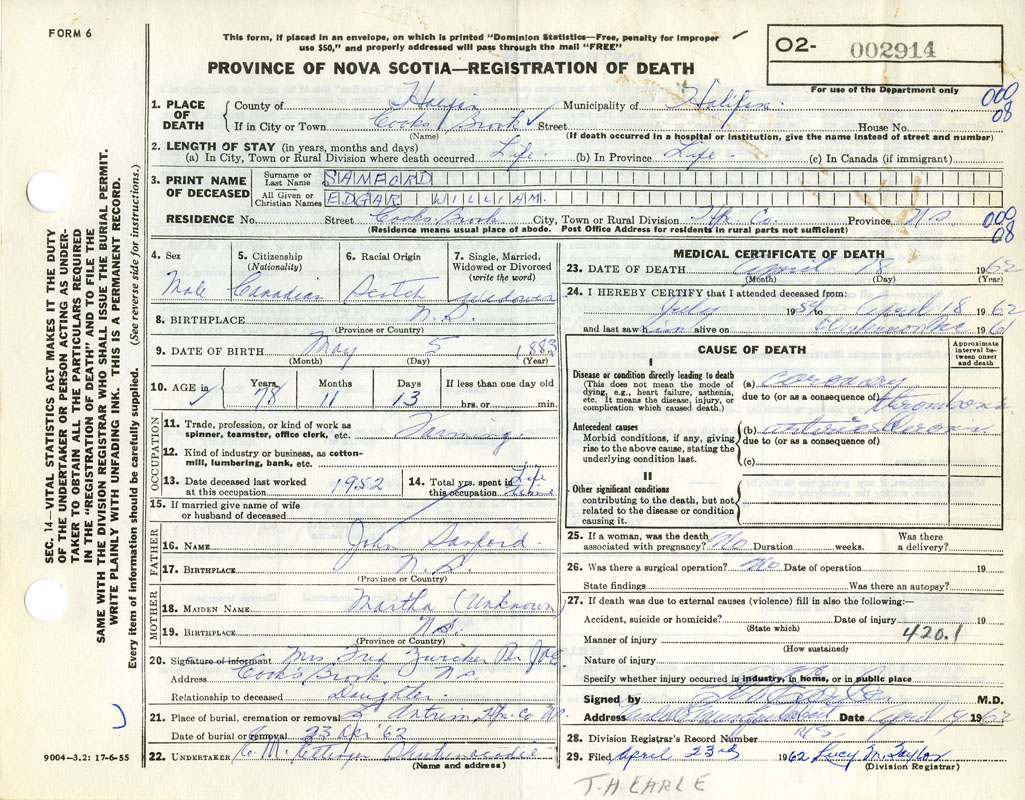 FORM 6
This form, if placed in an envelope, on which is printed "Dominion Statistics—Free, penalty for improper
use $50," and properly addressed will pass through the mail "FREE"
PROVINCE OF NOVA SCOTIA—REGISTRATION OF DEATH
O2- 002914
For use of the Department only
000
08
1. PLACE OF DEATH { County of Halifax Municipality of Halifax
If in City or Town Cooks Brook Street House No.
(Name) (If death occurred in a hospital or institution, give the name instead of street and number)
2. LENGTH OF STAY (in years, months and days)
(a) In City, Town or Rural Division where death occurred Life. (b) In Province Life. (c) In Canada (if immigrant)
3. PRINT NAME OF DECEASED
Surname or Last Name SAMFORD
All Given or Christian Names EDGAR WILLIAM.
RESIDENCE No. Street Cooks Brook City, Town or Rural Division Hfx Co. Province N S
(Residence means usual place of abode. Post Office Address for residents in rural parts not sufficient)
000
08
4. Sex
Male
5. Citizenship
(Nationality)
Canadian
6. Racial Origin
Scotch
7. Single, Married,
Widowed or Divorced
(write the word)
Widower
8. BIRTHPLACE N.S.
(Province or Country)
9. DATE OF BIRTH May 5 1883
(Month) (Day) (Year)
10. AGE in Years Months Days If less than one day old
78 11 13 hrs. or min.
OCCUPATION
11. Trade, profession, or kind of work as
spinner, teamster, office clerk, etc. Farming
12. Kind of industry or business, as cotton-
mill, lumbering, bank, etc.
13. Date deceased last worked
at this occupation 1952
14. Total yrs. spent in
this occupation Life
15. If married give name of wife
or husband of deceased
FATHER
16. NAME John Sanford
17. BIRTHPLACE N.S.
(Province or Country)
MOTHER
18. MAIDEN NAME Martha (Unknown
19. BIRTHPLACE N.S.
(Province or Country)
20. Signature of informant Mrs Fred Zwicker Per
Address Cook's Brook N.S
Relationship to deceased Daughter.
21. Place of burial, cremation or removal Antrim, Hfx. Co
Date of burial or removal 23 Apr '62
22. UNDERTAKER Shubenacadie
(Name and address)
MEDICAL CERTIFICATE OF DEATH
23. DATE OF DEATH April 18 1962
(Month) (Day) (Year)
24. I HEREBY CERTIFY that I attended deceased from:
July 19 to April 18 1962
and last saw him alive on 1961
CAUSE OF DEATH
Approximate
interval be-
tween onset
and death
I
Disease or condition directly leading to death
(This does not mean the mode of
dying, e.g., heart failure, asthenia,
etc. It means the disease, injury, or
complication which caused death.)
(a) coronary
due to (or as a consequence of) thrombosis
Antecedent causes
Morbid conditions, if any, giving
rise to the above cause, stating the
underlying condition last.
(b) arteriosclerosis
due to (or as a consequence of)
(c)
II
Other significant conditions
contributing to the death, but not
related to the disease or condition
causing it.
25. If a woman, was the death Was there
associated with pregnancy? No Duration weeks. a delivery?
26. Was there a surgical operation? No Date of operation 19
State findings Was there an autopsy?
27. If death was due to external causes (violence) fill in also the following:—
Accident, suicide or homicide? Date of injury 19
(State which)
420.1
Manner of injury
(How sustained)
Nature of injury
Specify whether injury occurred in industry, in home, or in public place
Signed by M.D.
Address Date April 19 1962
28. Division Registrar's Record Number
29. Filed April 23rd 1962 Lucy M. Taylor
(Division Registrar)
T.A. EARLE
SEC. 14—VITAL STATISTICS ACT MAKES IT THE DUTY
OF THE UNDERTAKER OR PERSON ACTING AS UNDER-
TAKER TO OBTAIN ALL THE PARTICULARS REQUIRED
IN THE "REGISTRATION OF DEATH" AND TO FILE THE
SAME WITH THE DIVISION REGISTRAR WHO SHALL ISSUE THE BURIAL PERMIT.
WRITE PLAINLY WITH UNFADING INK. THIS IS A PERMANENT RECORD.
Every item of information should be carefully supplied. (See reverse side for instructions.)
9004—3.2: 17-6-55